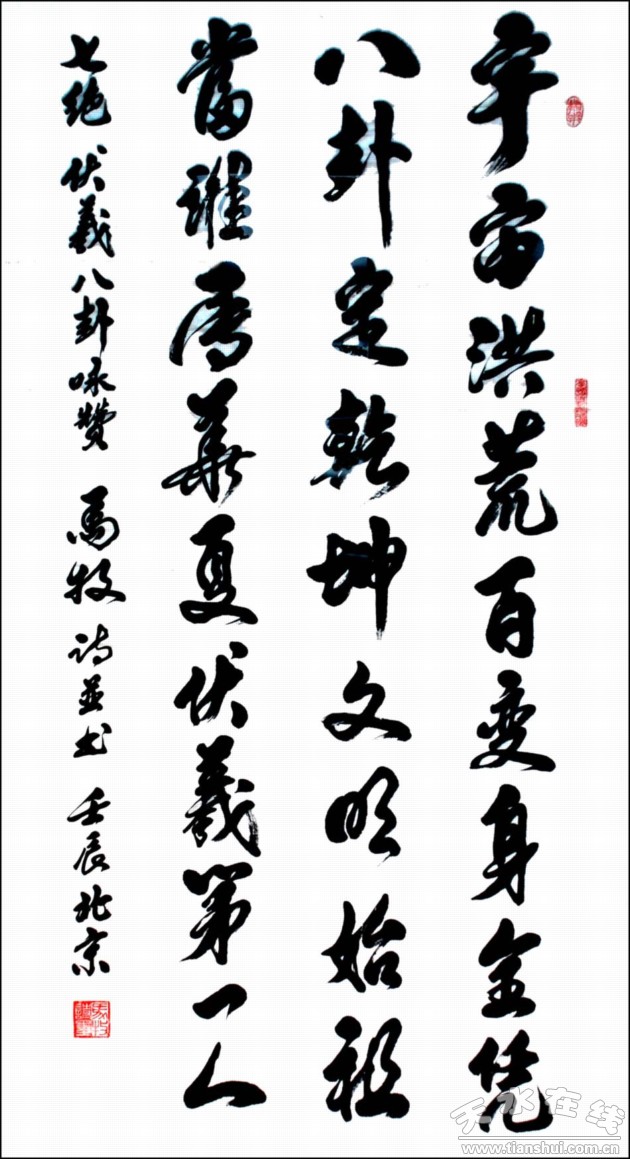 宇宙洪荒百变身全凭
八卦定乾坤文明始祖
當誰属華夏伏羲第一人
七绝 伏羲八卦咏赞 馬牧 诗並书 壬辰北京
天水在线
www.tianshui.com.cn